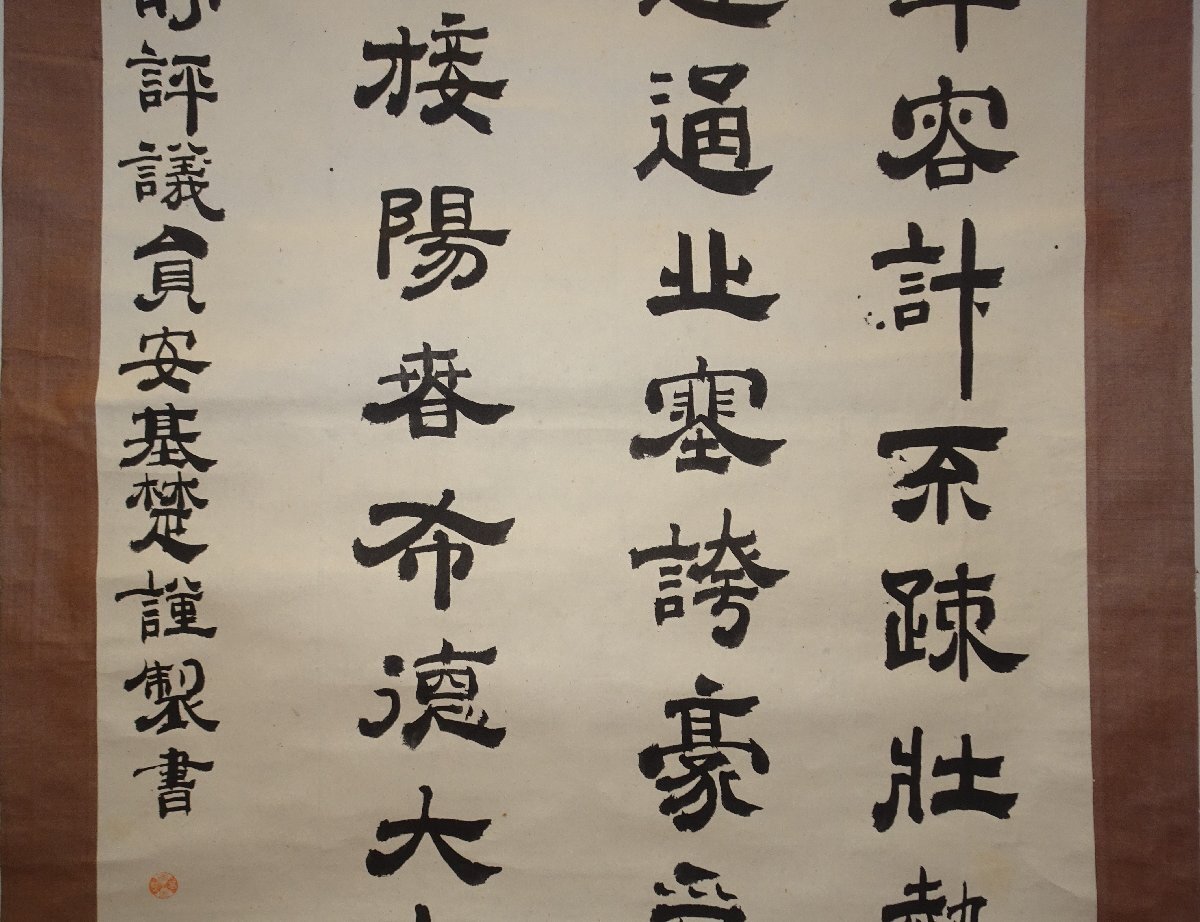 容計不疎壯
逼北塞誇豪
接陽春希德大
評議員安基楚謹製書